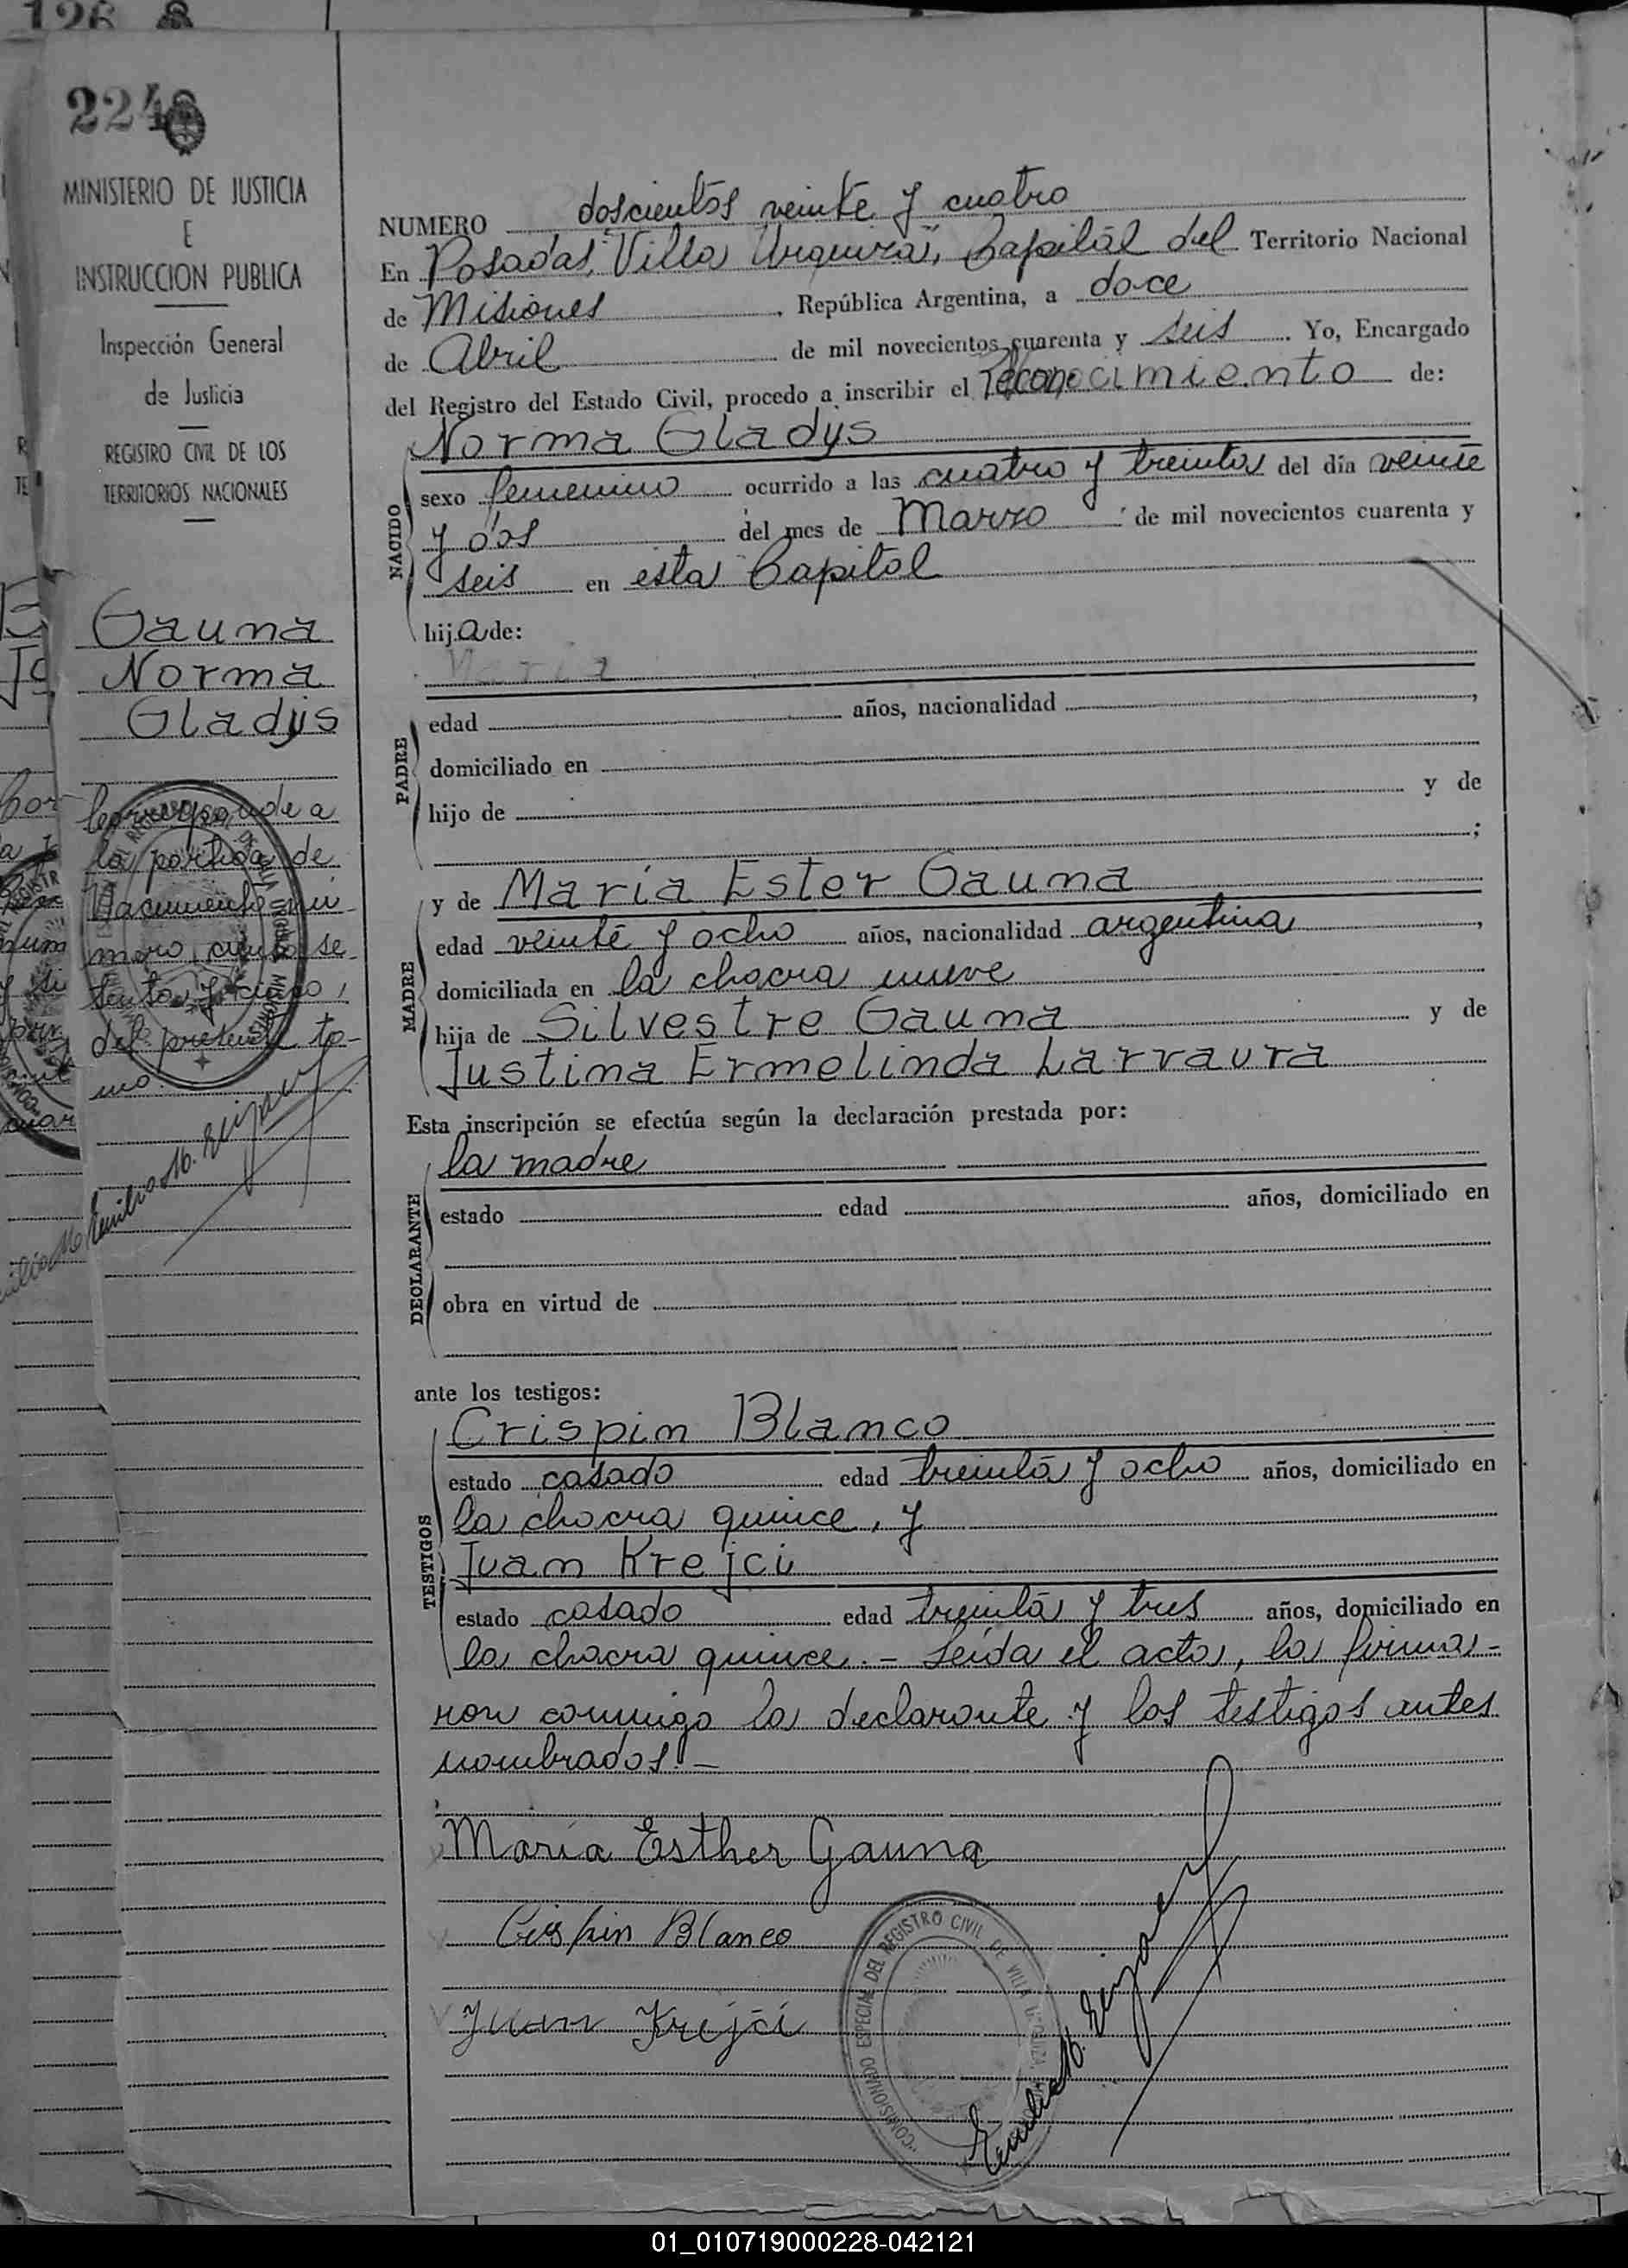 126
224
MINISTERIO DE JUSTICIA
E
INSTRUCCION PUBLICA
Inspección General
de Justicia
REGISTRO CIVIL DE LOS
TERRITORIOS NACIONALES
Gauna
Norma
Gladys
Corresponde a
la partida de
Nacimiento nú-
mero, ciento se-
tenta y cinco,
del presente to-
mo.
NUMERO doscientos veinte y cuatro
En Posadas, "Villa Urquiza", Capital del Territorio Nacional
de Misiones, República Argentina, a doce
de Abril de mil novecientos cuarenta y seis. Yo, Encargado
del Registro del Estado Civil, procedo a inscribir el Reconocimiento de:
Norma Gladys
NACIDO
sexo femenino ocurrido a las cuatro y treinta del día veinte
y dos del mes de Marzo de mil novecientos cuarenta y
seis en esta Capital
hija de:
Maria
PADRE
edad años, nacionalidad ,
domiciliado en
hijo de y de
;
MADRE
y de María Ester Gauna
edad veinte y ocho años, nacionalidad argentina,
domiciliada en la chacra nueve
hija de Silvestre Gauna y de
Justina Ermelinda Larraura
Esta inscripción se efectúa según la declaración prestada por:
la madre
DECLARANTE
estado edad años, domiciliado en
obra en virtud de
ante los testigos:
Crispin Blanco
TESTIGOS
estado casado edad treinta y ocho años, domiciliado en
la chacra quince, y
Juan Krejci
estado casado edad treinta y tres años, domiciliado en
la chacra quince.- Leída el acta, la firma-
ron conmigo la declarante y los testigos antes
nombrados.-
María Esther Gauna
Crispin Blanco
Juan Krejci
COMISIONADO ESPECIAL DEL REGISTRO CIVIL DE VILLA URQUIZA
01_010719000228-042121